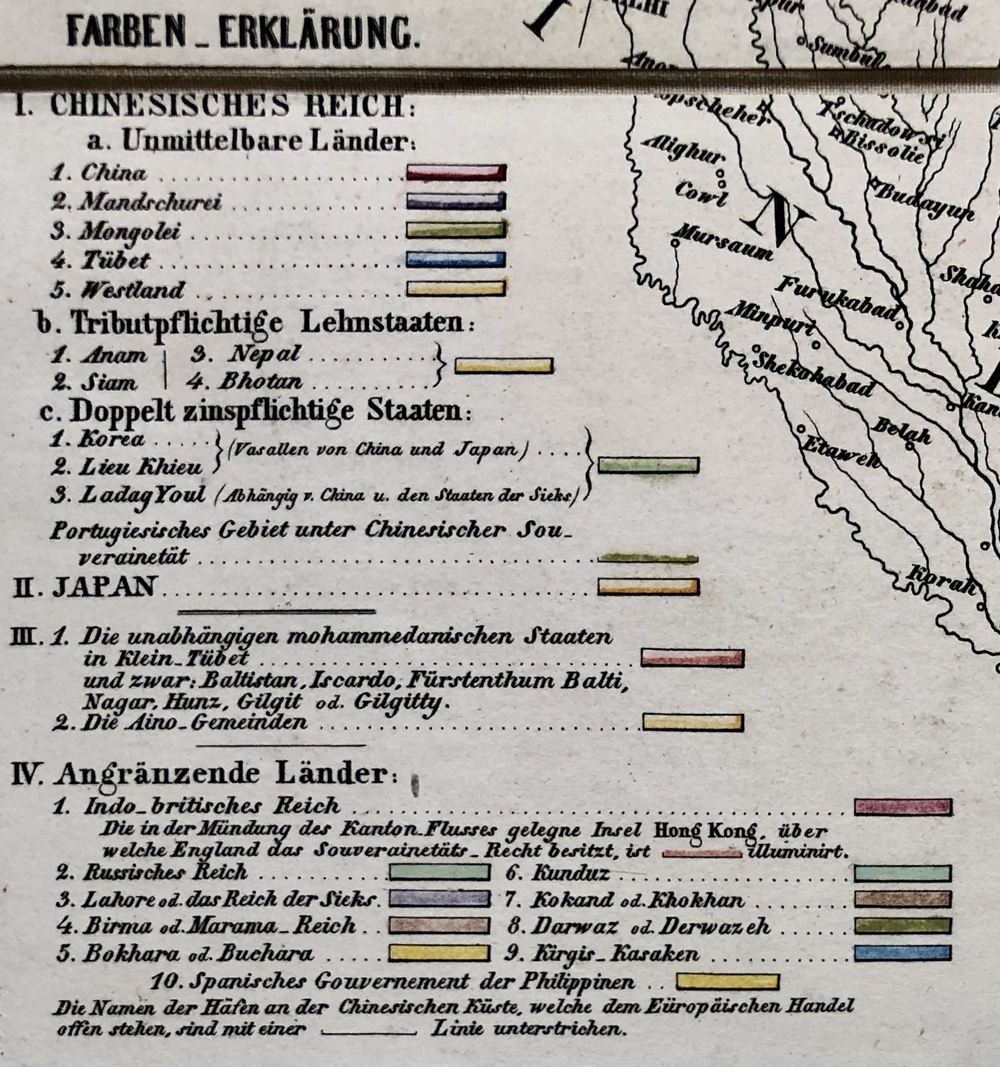 FARBEN_ERKLÄRUNG.
I. CHINESISCHES REICH:
a. Unmittelbare Länder:
1. China
2. Mandschurei
3. Mongolei
4. Tübet
5. Westland
b. Tributpflichtige Lehnstaaten:
1. Anam 3. Nepal
2. Siam 4. Bhotan
c. Doppelt zinspflichtige Staaten:
1. Korea (Vasallen von China und Japan)
2. Lieu Khieu
3. Ladag Youl (Abhängig v. China u. den Staaten der Sieks)
Portugiesisches Gebiet unter Chinesischer Sou_
verainetät
II. JAPAN
III. 1. Die unabhängigen mohammedanischen Staaten
in Klein_Tübet
und zwar: Baltistan, Iscardo, Fürstenthum Balti,
Nagar, Hunz, Gilgit od. Gilgitty.
2. Die Aino_Gemeinden
IV. Angränzende Länder:
1. Indo_britisches Reich
Die in der Mündung des Kanton_Flusses gelegne Insel Hong Kong, über
welche England das Souverainetäts_Recht besitzt, ist illuminirt.
2. Russisches Reich 6. Kunduz
3. Lahore od. das Reich der Sieks. 7. Kokand od. Khokhan
4. Birma od. Marama_Reich 8. Darwaz od. Derwazeh
5. Bokhara od. Buchara 9. Kirgis_Kasaken
10. Spanisches Gouvernement der Philippinen
Die Namen der Häfen an der Chinesischen Küste, welche dem Eüropäischen Handel
offen stehen, sind mit einer Linie unterstrichen.
Sumbul
Tschadowsi
Bissolie
Alighur
Cowl
Budayun
N
Mursaum
Furukabad
Minpuri
Shekohabad
Belah
Etaweh
Korah